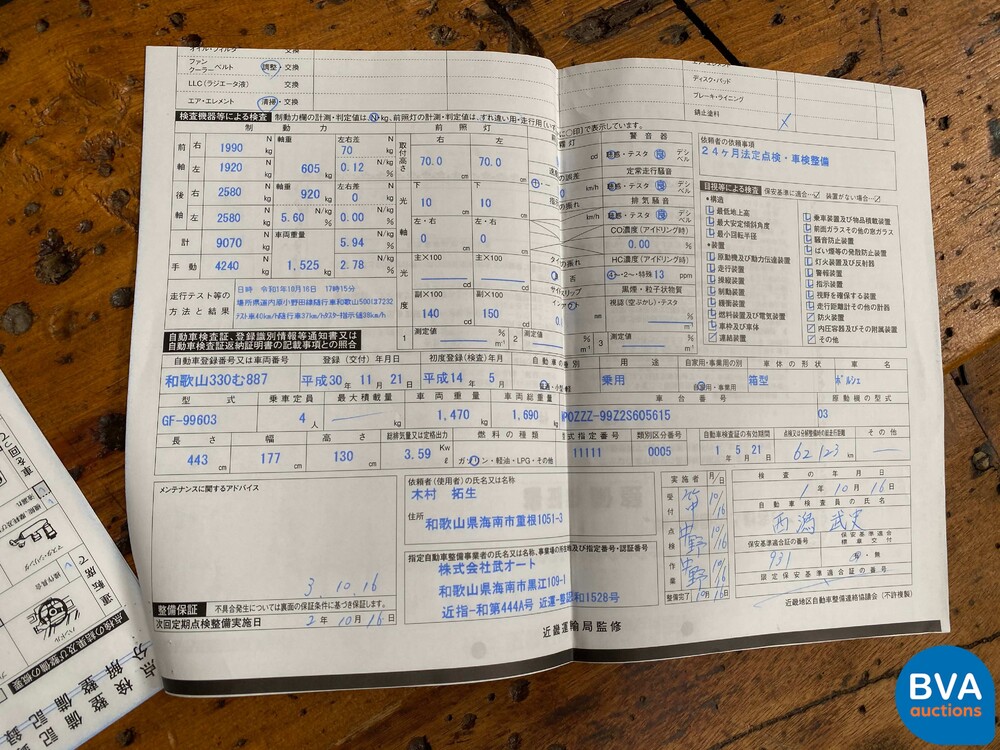 オイル・フィルタ 交換
ファン
クーラーベルト 調整・交換
LLC(ラジエータ液) 交換
エア・エレメント 清掃・交換
ディスク・パッド
ブレーキ・ライニング
錆止塗料
検査機器等による検査 制動力欄の計測・判定値は、N kg、前照灯の計測・判定値は、すれ違い用・走行用
に○印)で表示しています。
制動力
前照灯
警音器
前軸 右 1990 N kg 軸重 左右差 70 N kg 取付高さ 右 70.0 左 70.0
左 1920 N kg 605 kg 0.12 N/kg
後軸 右 2580 N kg 軸重 920 kg 左右差 0 N kg 光 下 10 下 10
左 2580 N kg 5.60 N/kg 0.00 N/kg 軸 左・右 0 cm 左・右 0 cm
計 9070 N kg 車両重量 5.94 N/kg 光度 主×100 主×100
手動 4240 N kg 1,525 kg 2.78 N/kg 副×100 140 副×100 150
定常走行騒音
排気騒音
CO濃度(アイドリング時)
0.00 %
HC濃度(アイドリング時)
④-2-・特殊 13 ppm
黒煙・粒子状物質
視認(空ぶかし)・テスタ
走行テスト等の
方法と結果
日時 令和1年10月16日 17時15分
テスト車40km/h随行車37km/hテスター指示値38km/h
測定値 測定値 測定値
依頼者の依頼事項
24ヶ月法定点検・車検整備
目視等による検査 保安基準に適合…レ 装置がない場合…
*構造
最低地上高
最大安定傾斜角度
最小回転半径
*装置
原動機及び動力伝達装置
走行装置
操縦装置
制動装置
緩衝装置
燃料装置及び電気装置
車枠及び車体
連結装置
乗車装置及び物品積載装置
前面ガラスその他の窓ガラス
騒音防止装置
ばい煙等の発散防止装置
灯火装置及び反射器
警報装置
指示装置
視野を確保する装置
走行距離計その他の計器
防火装置
内圧容器及びその附属装置
その他
自動車検査証、登録識別情報等通知書又は
自動車検査証返納証明書の記載事項との照合
自動車登録番号又は車両番号 登録(交付)年月日 初度登録(検査)年月 自動車の種別 用途 自家用・事業用の別 車体の形状 車名
和歌山330む887 平成30年11月21日 平成14年5月 乗用 自家用・事業用 箱型 ポルシェ
型式 乗車定員 最大積載量 車両重量 車両総重量 車台番号 原動機の型式
GF-99603 4人 kg 1,470 kg 1,690 kg WP0ZZZ-99Z2S605615 03
長さ 幅 高さ 総排気量又は定格出力 燃料の種類 型式指定番号 類別区分番号 自動車検査証の有効期間 点検又は分解整備時の総走行距離 その他
443 cm 177 cm 130 cm 3.59 Kw ℓ ガソリン・軽油・LPG・その他 11111 0005 1年5月21 62123 km
メンテナンスに関するアドバイス
3 10.16
依頼者(使用者)の氏名又は名称
木村 拓生
住所
和歌山県海南市重根1051-3
指定自動車整備事業者の氏名又は名称、事業場の所在地及び指定番号・認証番号
株式会社武オート
和歌山県海南市黒江109-1
近指-和第444A号 近運-整認和1528号
実施者 月/日
受付 10/16
点検 中野 10/16
作業 中野 10/16
整備完了 10月16日
検査の年月日
1年10月16日
自動車検査員の氏名
西潟 武史
保安基準適合証の番号 保安基準適合標章交付
931 有・無
限定保安基準適合証の番号
整備保証 不具合発生については裏面の保証条件に基づき保証します。
次回定期点検整備実施日 2年10月16日
近畿運輸局監修
近畿地区自動車整備連絡協議会(不許複製)
運転席で
ハンドル
操作具合
マスタ・シリンダ
点検の結果及び整備の概要
点検整備記録
分解整備記録
BVA
auctions